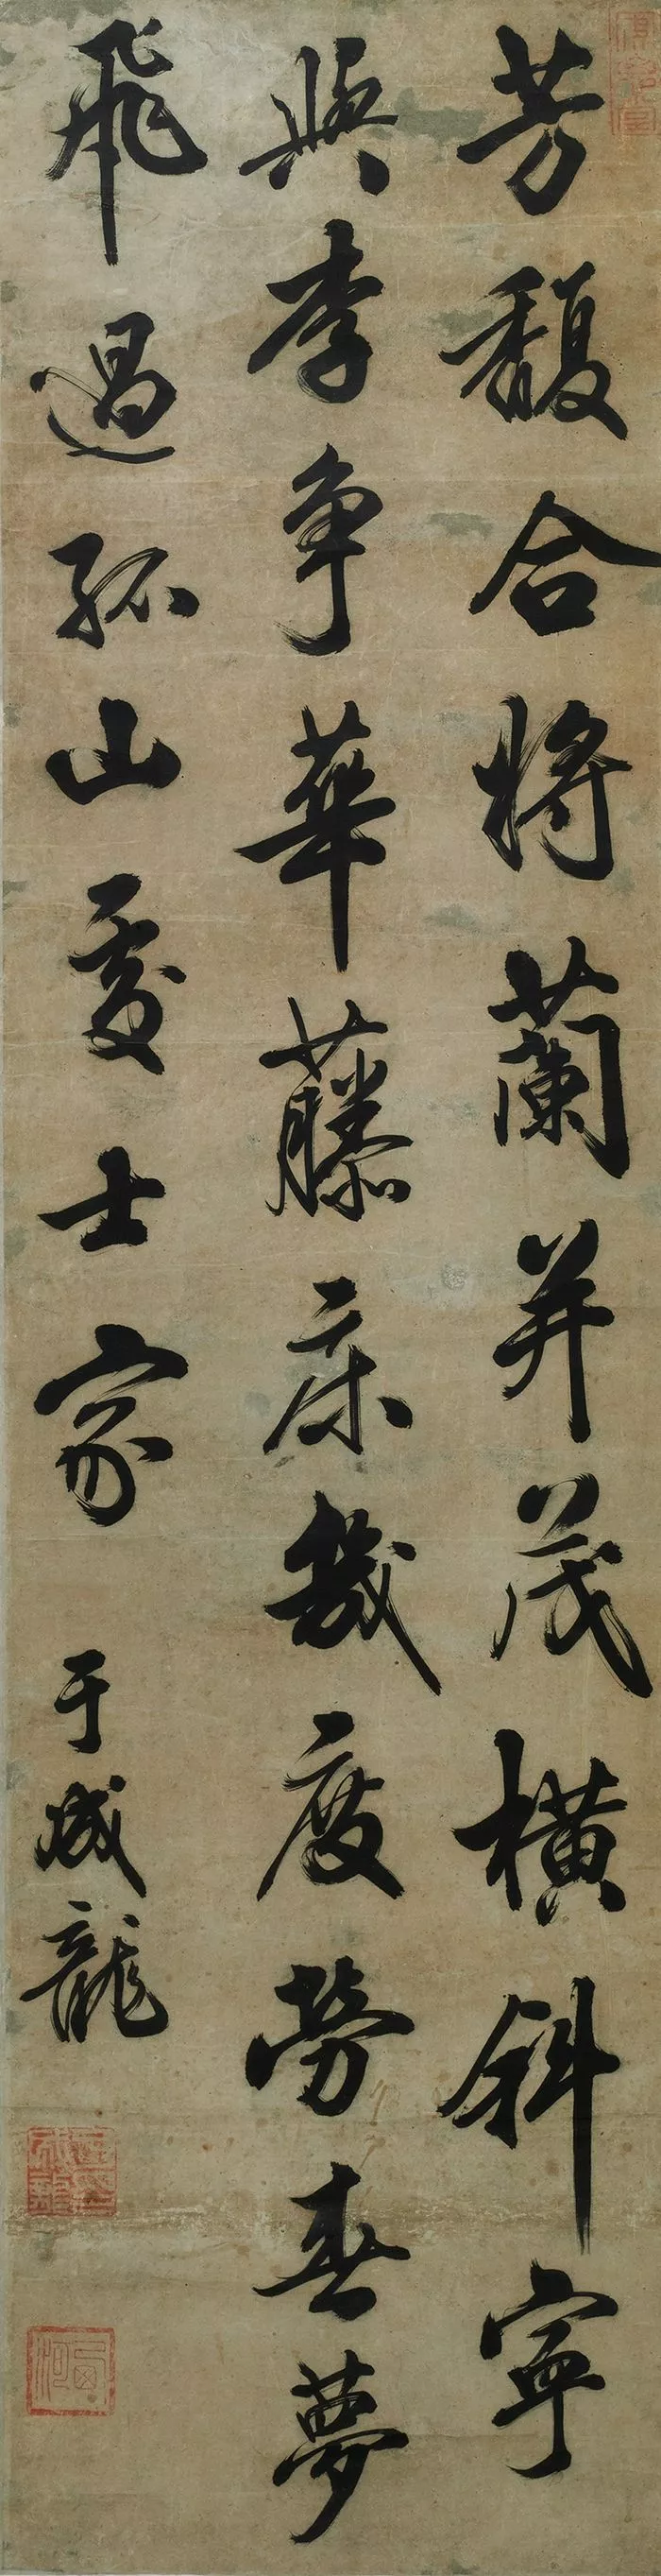 芳馥合将蘭并茂橫斜寧
與李争華藤床幾度勞春夢
飛過孤山處士家
于成龍